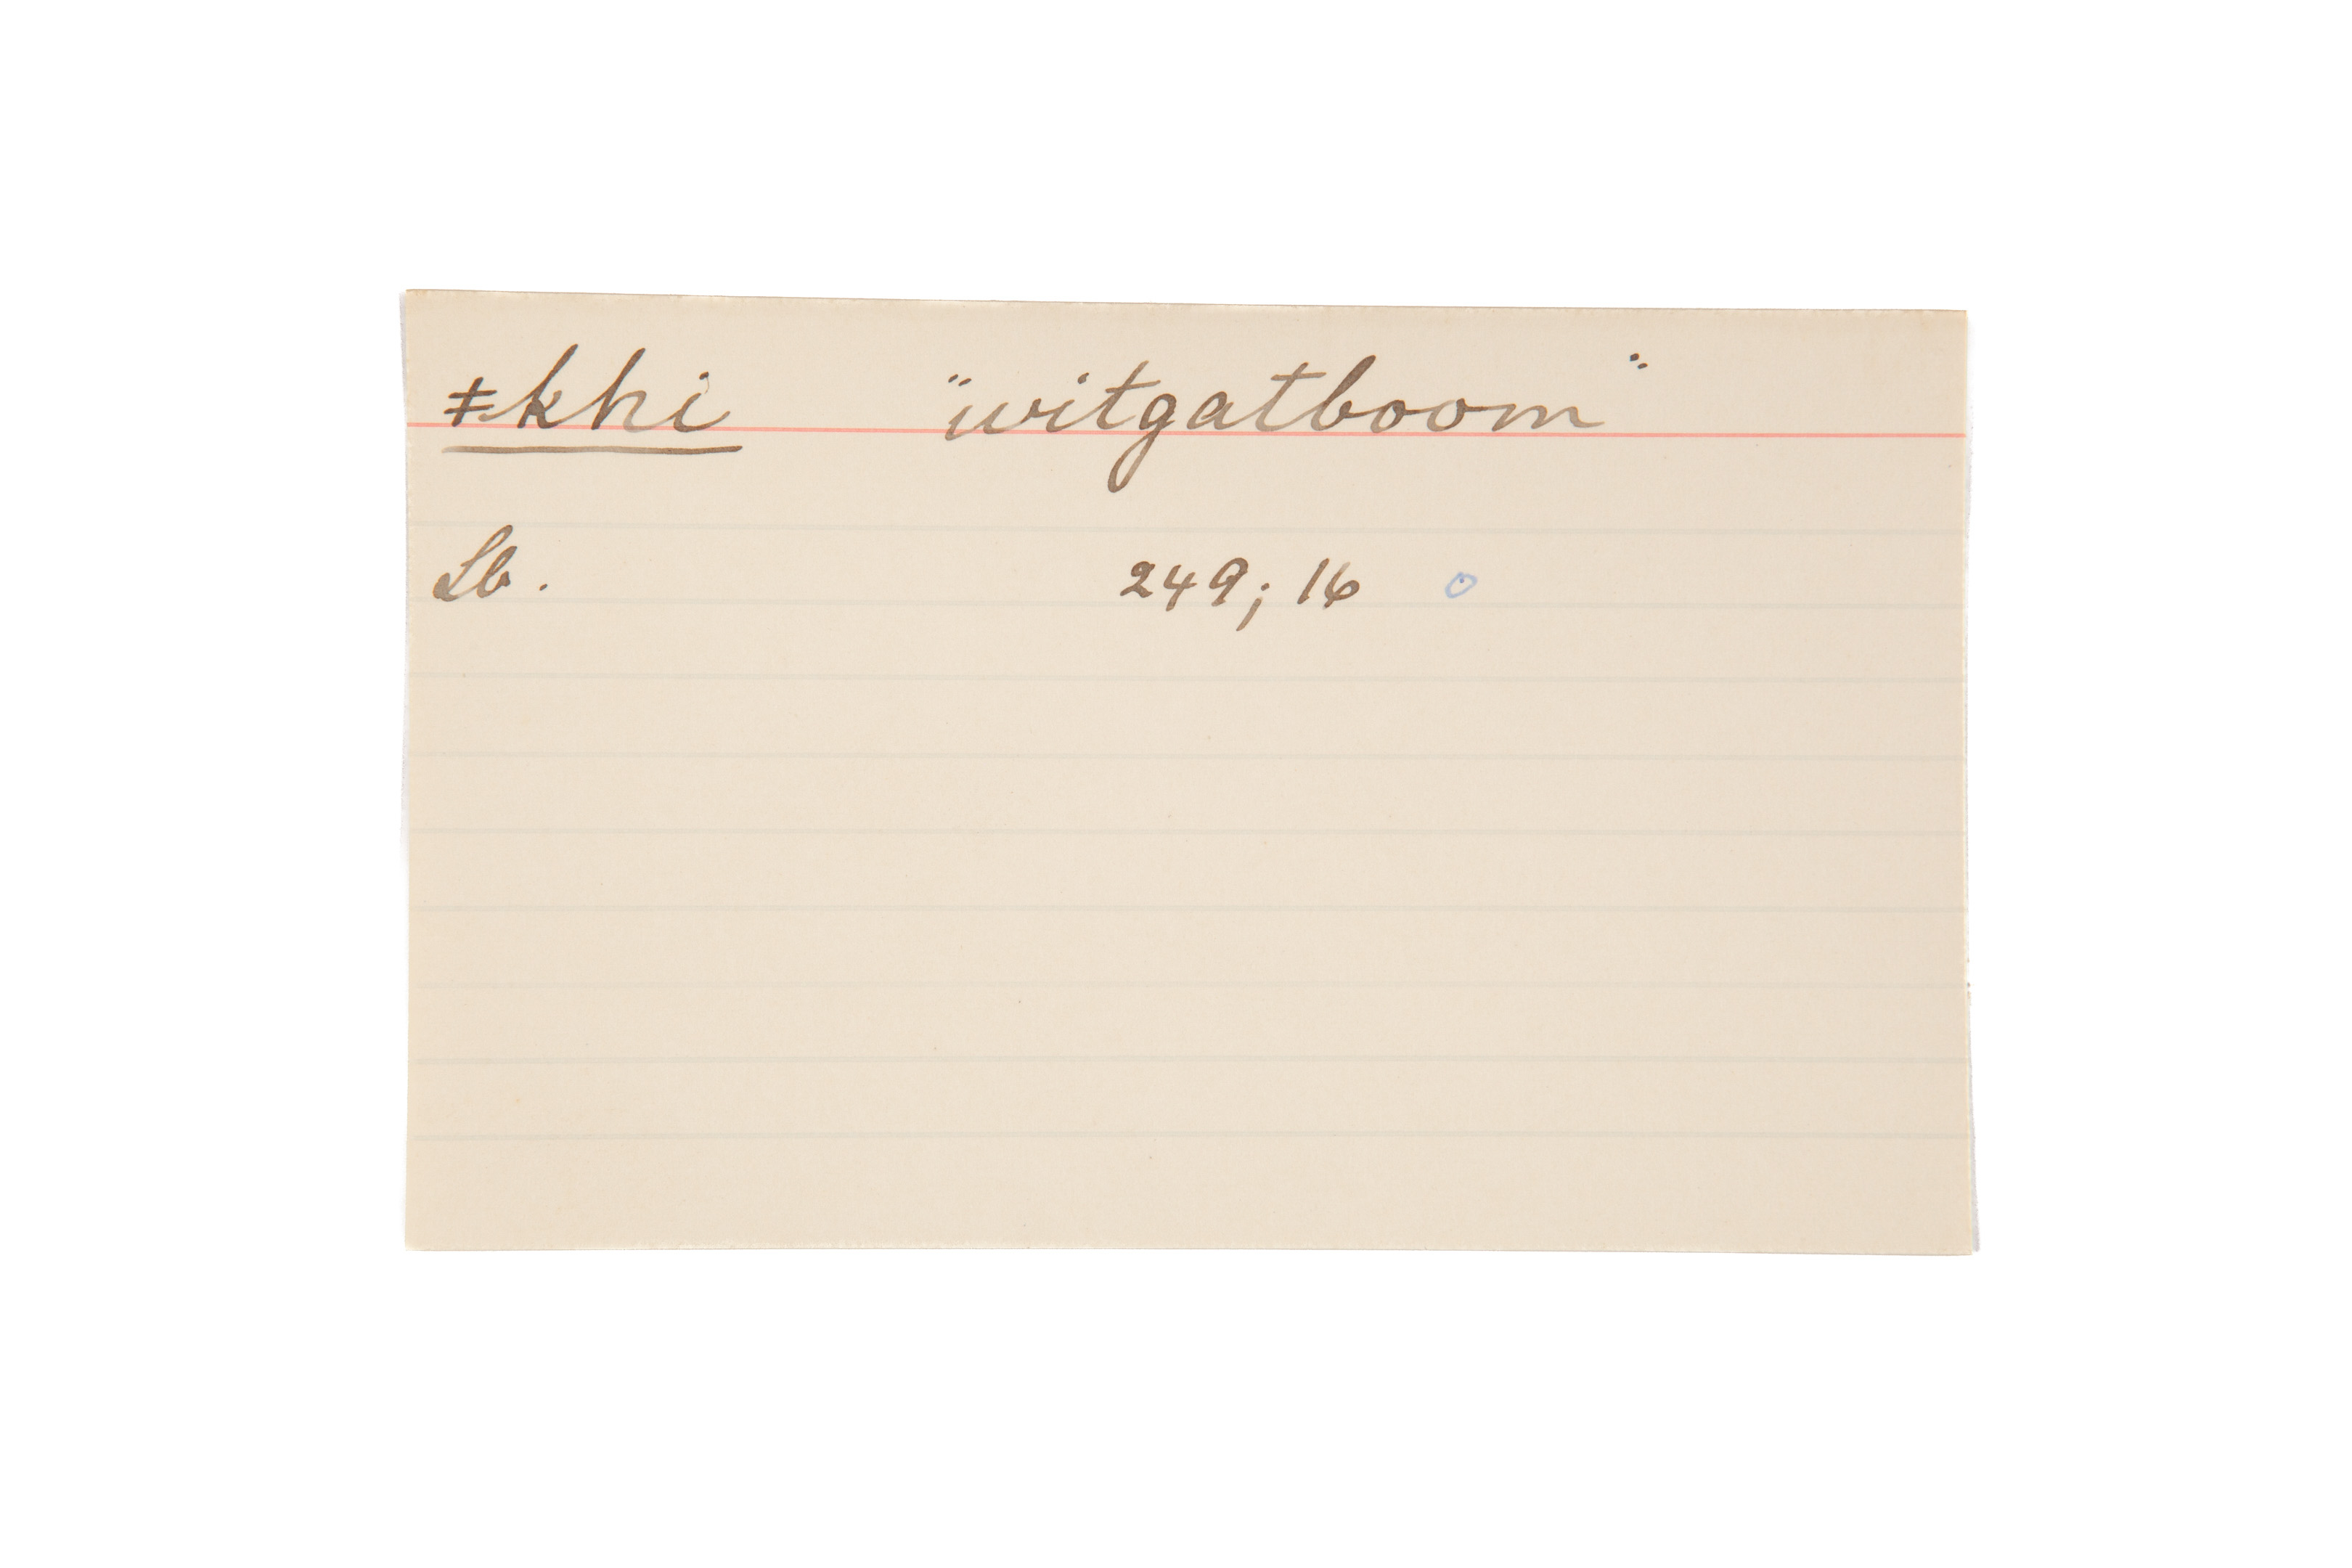 ǂkhi "witgatboom"
Lb. 249; 16 o